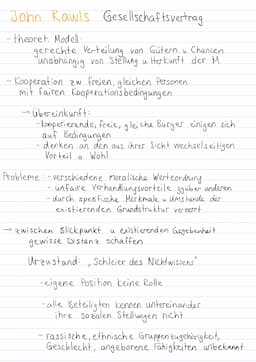 John Rawls Gesellschaftsvertrag
- theoret. Modell:
gerechte Verteilung von Gütern u Chancen
unabhängig von Stellung u Herkunft der M
- Kooperation zw freien, gleichen Personen
mit fairen Kooperationsbedingungen
→ Übereinkunft:
- kooperierende, freie, gleiche Bürger einigen sich
auf Bedingungen
- denken an den aus ihrer Sicht wechselseitigen
Vorteil o Wohl
Probleme: - verschiedene moralische Wertordnung
- unfaire Verhandlungsvorteile ggüber anderen
- durch spezifische Merkmale u Umstände der
existierenden Grundstruktur verzerrt
→ zwischen Blickpunkt u existierenden Gegebenheit
gewisse Distanz schaffen
Urzustand: „Schleier des Nichtwissens"
- eigene Position keine Rolle
- alle Beteiligten kennen untereinander
ihre sozialen Stellungen nicht
- rassische, ethnische Gruppenzugehörigkeit,
Geschlecht, angeborene Fähigkeiten unbekannt